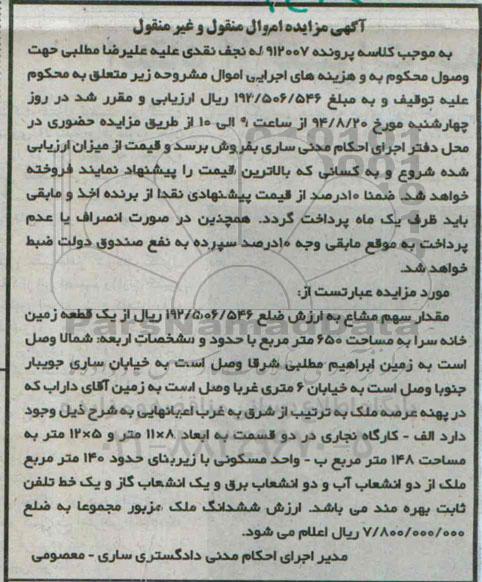 آگهی مزایده اموال منقول و غیر منقول
به موجب کلاسه پرونده ۹۱۲۰۰۷ له نجف نقدی علیه علیرضا مطلبی جهت
وصول محکوم به و هزینه های اجرایی اموال مشروحه زیر متعلق به محکوم
علیه توقیف و به مبلغ ۱۹۲/۵۰۶/۵۴۶ ریال ارزیابی و مقرر شد در روز
چهارشنبه مورخ ۹۴/۸/۲۰ از ساعت ۹ الی ۱۰ از طریق مزایده حضوری در
محل دفتر اجرای احکام مدنی ساری بفروش برسد و قیمت از میزان ارزیابی
شده شروع و به کسانی که بالاترین قیمت را پیشنهاد نمایند فروخته
خواهد شد. ضمنا ۱۰درصد از قیمت پیشنهادی نقدا از برنده اخذ و مابقی
باید ظرف یک ماه پرداخت گردد. همچنین در صورت انصراف یا عدم
پرداخت به موقع مابقی وجه ۱۰درصد سپرده به نفع صندوق دولت ضبط
خواهد شد.
مورد مزایده عبارتست از:
مقدار سهم مشاع به ارزش ضلع ۱۹۲/۵۰۶/۵۴۶ ریال از یک قطعه زمین
خانه سرا به مساحت ۶۵۰ متر مربع با حدود و مشخصات اربعه: شمالا وصل
است به زمین ابراهیم مطلبی شرقا وصل است به خیابان ساری جویبار
جنوبا وصل است به خیابان ۶ متری غربا وصل است به زمین آقای داراب که
در پهنه عرصه ملک به ترتیب از شرق به غرب اعیانهایی به شرح ذیل وجود
دارد الف - کارگاه نجاری در دو قسمت به ابعاد ۸×۱۱ متر و ۵×۱۲ متر به
مساحت ۱۴۸ متر مربع ب - واحد مسکونی با زیربنای حدود ۱۴۰ متر مربع
ملک از دو انشعاب آب و دو انشعاب برق و یک انشعاب گاز و یک خط تلفن
ثابت بهره مند می باشد. ارزش ششدانگ ملک مزبور مجموعا به ضلع
۷/۸۰۰/۰۰۰/۰۰۰ ریال اعلام می شود.
مدیر اجرای احکام مدنی دادگستری ساری - معصومی
ParsNamadData